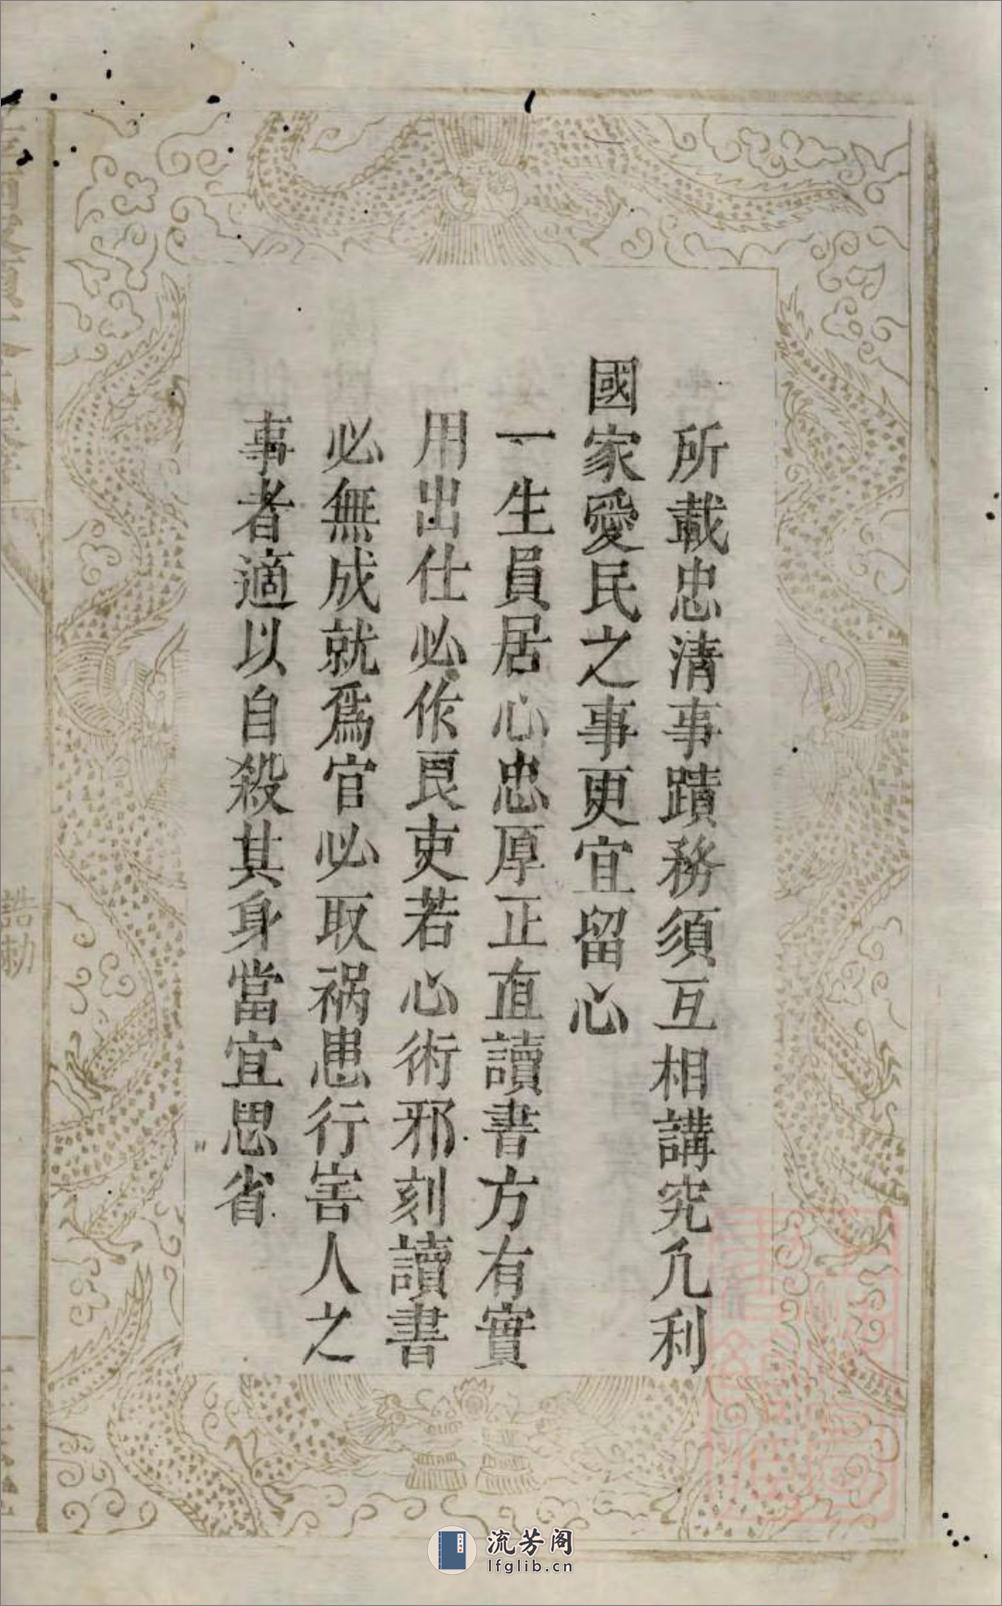 所載忠清事蹟務須互相講究凡利
國家愛民之事更宜留心
一生員居心忠厚正直讀書方有實
用出仕必作良吏若心術邪刻讀書
必無成就爲官必取禍患行害人之
事者適以自殺其身當宜思省
誥勅
流芳阁
lfglib.cn